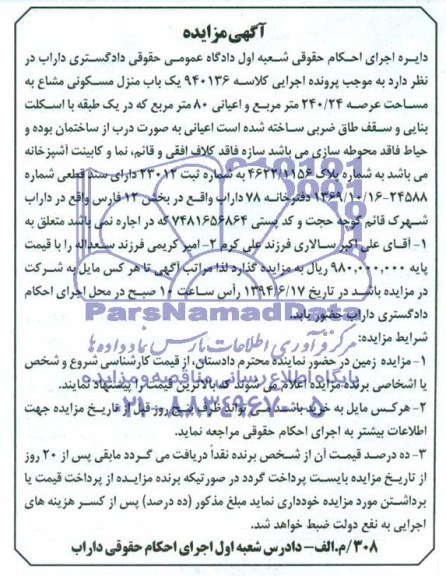 آگهی مزایده
دایره اجرای احکام حقوقی شعبه اول دادگاه عمومی حقوقی دادگستری داراب در
نظر دارد به موجب پرونده اجرایی کلاسه ۹۴۰۱۳۶ یک باب منزل مسکونی مشاع به
مساحت عرصه ۲۴۰/۲۴ متر مربع و اعیانی ۸۰ متر مربع که در یک طبقه با اسکلت
بنایی و سقف طاق ضربی ساخته شده است اعیانی به صورت درب از ساختمان بوده و
حیاط فاقد محوطه سازی می باشد سازه فاقد کلاف افقی و قائم، نما و کابینت آشپزخانه
می باشد به شماره پلاک ۴۶۲۲/۱۱۵۶ به شماره ثبت ۲۳۰۱۲ دارای سند قطعی شماره
۲۴۵۸۸-۱۳۶۹/۱۰/۱۶ دفترخانه ۷۸ داراب واقع در بخش ۱۲ فارس واقع در داراب
شهرک قائم کوچه حجت و کد پستی ۷۴۸۱۶۵۶۸۶۴ که در اجاره نمی باشد متعلق به
۱- آقای علی اکبر سالاری فرزند علی کرم ۲- امیر کریمی فرزند سعداله را با قیمت
پایه ۹۸۰,۰۰۰,۰۰۰ ریال به مزایده گذارد لذا مراتب آگهی تا هر کس مایل به شرکت
در مزایده باشد در تاریخ ۱۳۹۴/۶/۱۷ رأس ساعت ۱۰ صبح در محل اجرای احکام
دادگستری داراب حضور یابد.
ParsNamadData
شرایط مزایده:
مرکز فرآوری اطلاعات پارس نماد داده ها
۱- مزایده زمین در حضور نماینده محترم دادستان، از قیمت کارشناسی شروع و شخص
یا اشخاصی برنده مزایده اعلام می شوند که بالاترین قیمت را پیشنهاد نمایند.
پایگاه اطلاع رسانی مناقصه و مزایده
۲- هرکس مایل به خرید باشد می تواند ظرف پنج روز قبل از تاریخ مزایده جهت
۰۲۱-۸۸۳۴۹۶۷۰-۵
اطلاعات بیشتر به اجرای احکام حقوقی مراجعه نماید.
۳- ده درصد قیمت آن از شخص برنده نقداً دریافت می گردد مابقی پس از ۲۰ روز
از تاریخ مزایده بایست پرداخت گردد در صورتیکه برنده مزایده از پرداخت قیمت یا
برداشتن مورد مزایده خودداری نماید مبلغ مذکور (ده درصد) پس از کسر هزینه های
اجرایی به نفع دولت ضبط خواهد شد.
۳۰۸/م.الف- دادرس شعبه اول اجرای احکام حقوقی داراب